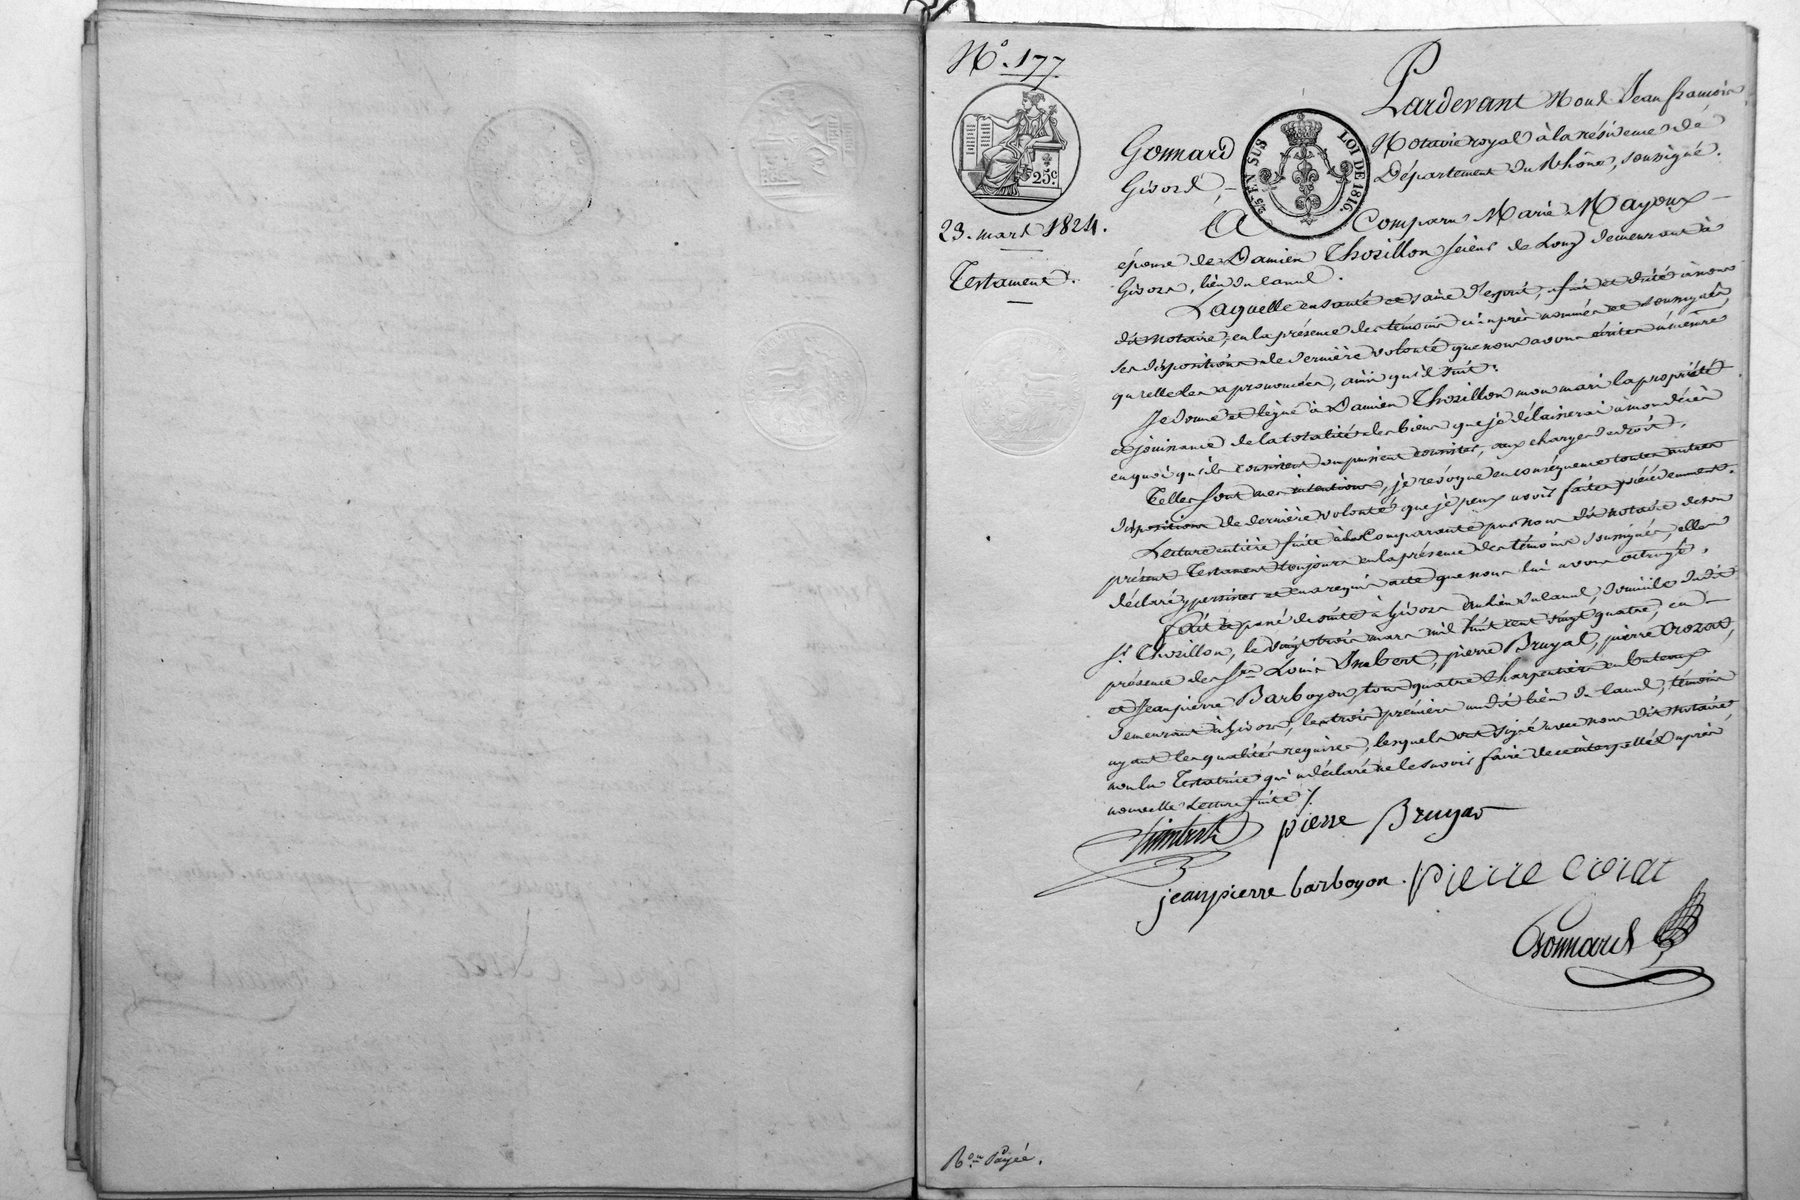 N.o 177
25.c
23. mars 1824.
Testament.
25 c EN SUS
LOI DE 1816.
Pardevant Nous Jean françois
Gonnard Notaire royal à la résidence de
Givors, Département du Rhône, soussigné.
A Comparu Marie Mayoux
épouse de Damien Thozillon scieur de Long demeurant à
Givors, lieu du canal.
Laquelle en santé et saine d'esprit, a fait et dicté à nous
dit Notaire, en la présence des témoins ci après nommés et soussignés
ses dispositions de dernière volonté que nous avons écrites à mesure
qu'elle les a prononcées, ainsi qu'il suit:
Je donne et lègue à Damien Thozillon mon mari la propriété
et jouissance de la totalité des biens que je délaisserai à mon décès
en quoi qu'ils consistent ou puissent consister, aux charges de droit.
Telles sont mes intentions, je révoque en conséquence toutes autres
dispositions de dernière volonté que je peux avoir faites précédemment.
Lecture entière faite à la Comparante par nous dit notaire de son
présent Testament toujours en la présence des témoins soussignés, elle a
déclaré y persister et en a requis acte que nous lui avons octroyé.
Fait et passé de suite à Givors au lieu du canal, domicile dudit
Sr. Thozillon, le vingt trois mars mil huit cent vingt quatre, en
présence des Srs Louis Imbert, pierre Bruyas, pierre Crozat,
et Jean pierre Barboyon, tous quatre charpentiers en bateaux
demeurant à Givors, les trois premiers audit lieu du canal, témoins
ayant les qualités requises, lesquels ont signé avec nous dit Notaire
non la Testatrice qui a déclaré ne le savoir faire de ce interpellée après
nouvelle Lecture faite /.
Limbert pierre Bruyas
jean pierre barboyon. pieire croiat
Gonnard
Payée.